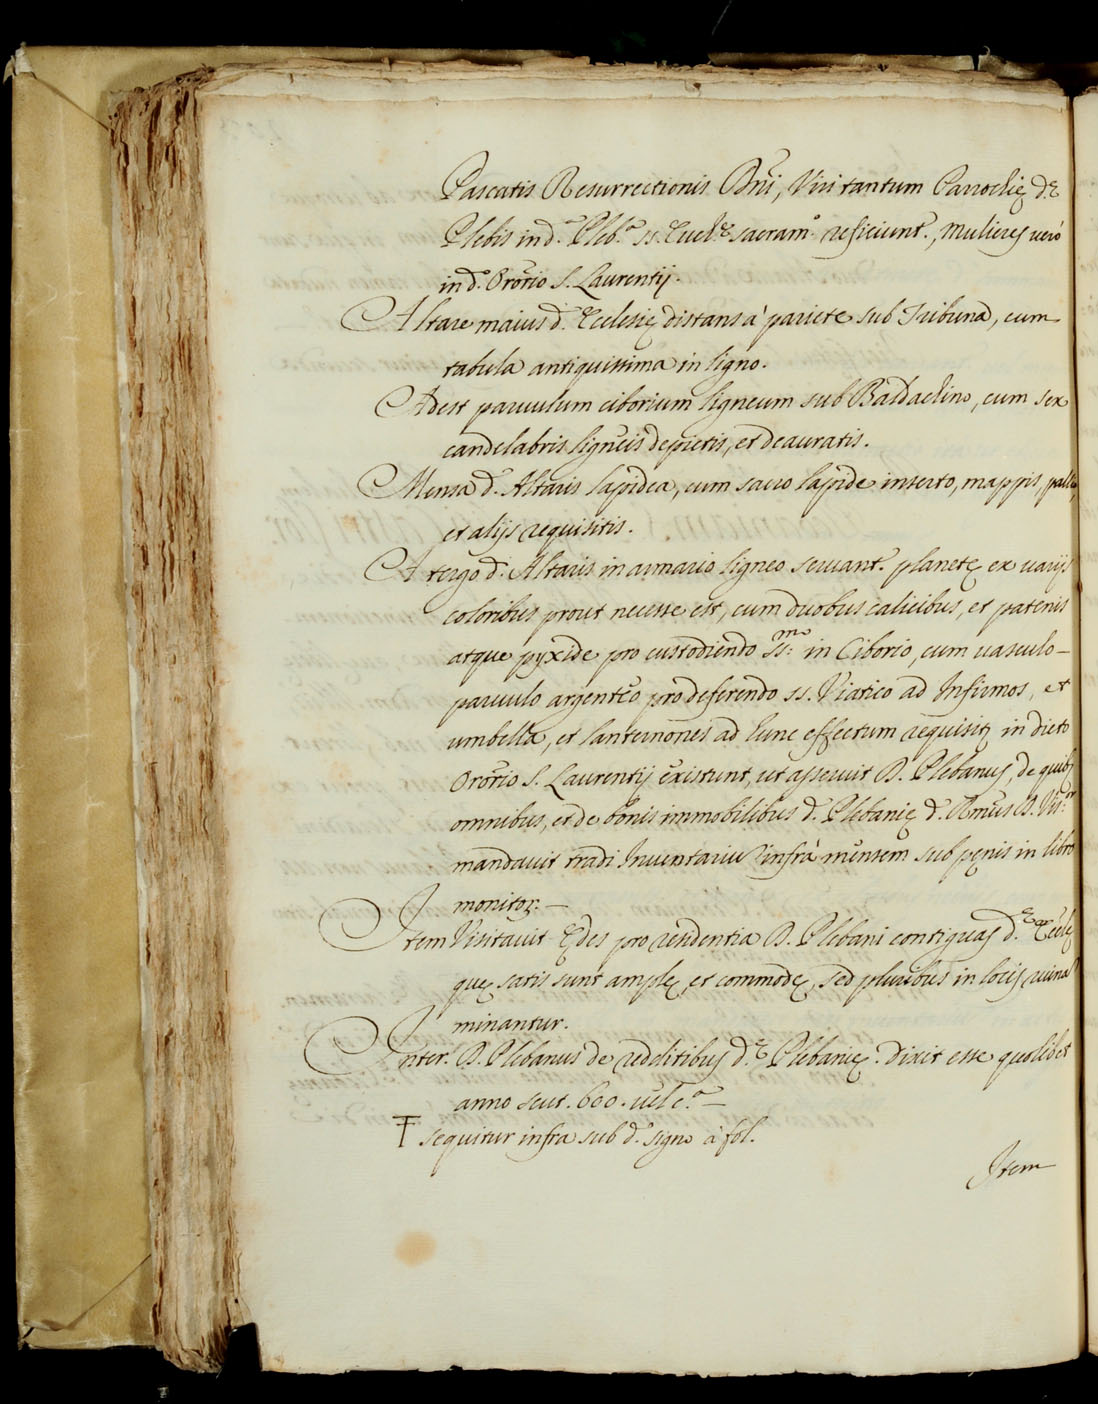 Pascatis Resurrectionis Dni, Viri tantum Parrochię d.ę
Plebis in d.ª Pleb.ª ss. Euch.ę sacram.º reficiunt., Mulieres verò
in d.º Orõrio S. Laurentij.
Altare maius d.ę Ecclesię distans à pariete sub Tribuna, cum
tabula antiquissima in ligno.
Adest parvulum ciborium ligneum sub Baldachino, cum sex
candelabris ligneis depictis, et deauratis.
Mensa d. Altaris lapidea, cum sacro lapide inserto, mappis,
et alijs requisitis.
A tergo d. Altaris in armario ligneo servant. planetę ex varijs
coloribus prout necesse est, cum duobus calicibus, et patenis
atque pyxide pro custodiendo Ss:mo in Ciborio, cum vasculo
parvulo argenteo pro deferendo ss. Viatico ad Infirmos, et
umbella, et lanternones ad hunc effectum requisitę in dicto
Orõrio S. Laurentij existunt, ut asseruit D. Plebanus, de quibus
omnibus, et de bonis immobilibus d. Plebanię d. Rmus D. Vis.or
mandavit tradi Inventariu infrà mensem sub pęnis in libro
monitor. —
Item Visitavit Ędes pro residentia D. Plebani contiguas d.ę Ecclę
quę satis sunt amplę, et commodę, sed pluribus in locis ruina
minantur.
Inter. D. Plebanus de redditibus d.ę Plebanię. Dixit esse quolibet
anno scut. 600. vel c.ª —
sequitur infra sub d.º signo à fol.
Item